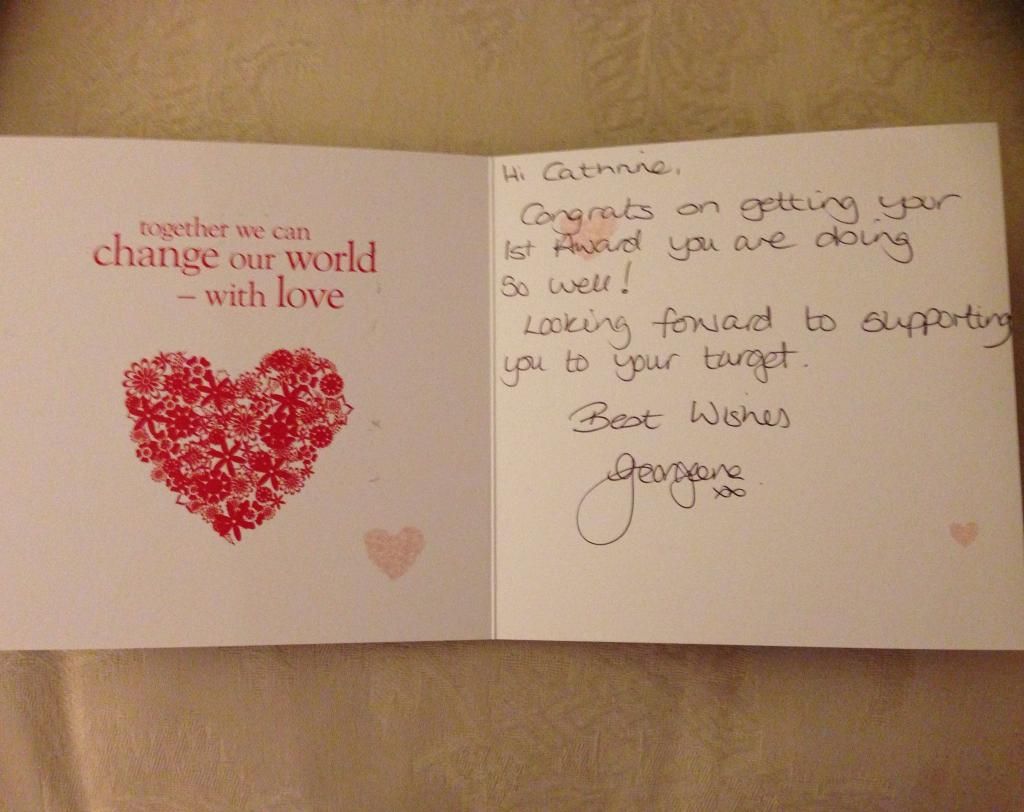 together we can
change our world
– with love
Hi Cathrine,
Congrats on getting your
1st Award you are doing
So well!
Looking forward to supporting
you to your target.
Best Wishes
Georgeene
xxx